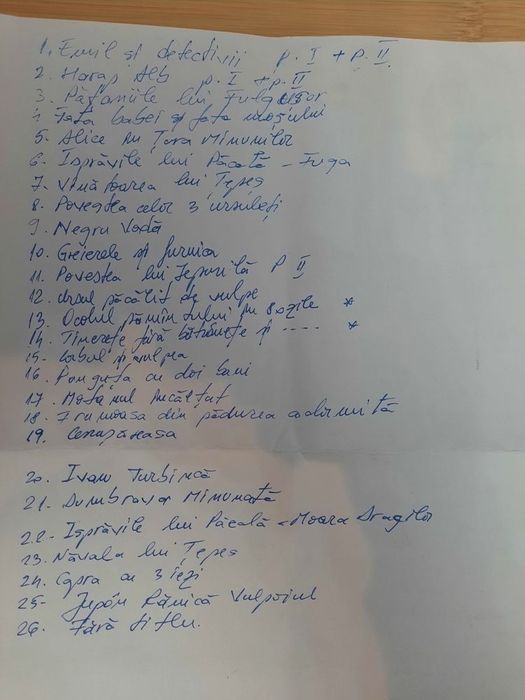 1. Emil și detectivii p. I + p. II
2. Harap Alb p. I + p. II
3. Pățaniile lui Fulgușor
4 Fata babei și fata moșului
5. Alice în Țara Minunilor
6. Isprăvile lui Păcală - Fuga
7. Vînătoarea lui Țepeș
8. Povestea celor 3 ursuleți
9. Negru Vodă
10. Greierele și furnica
11. Povestea lui Iepurilă P II
12. Ursul păcălit de vulpe
13. Ocolul pămîntului în 80 zile *
14. Tinerețe fără bătrînețe și ..... *
15. Corbul și vulpea
16. Punguța cu doi bani
17. Motanul încălțat
18. Frumoasa din pădurea adormită
19. Cenușăreasa
20. Ivan Turbincă
21. Dumbrava Minunată
22. Isprăvile lui Păcală - Moara Dracilor
23. Năvala lui Țepeș
24. Capra cu 3 iezi
25. Vulpoiul
26. Fără titlu.